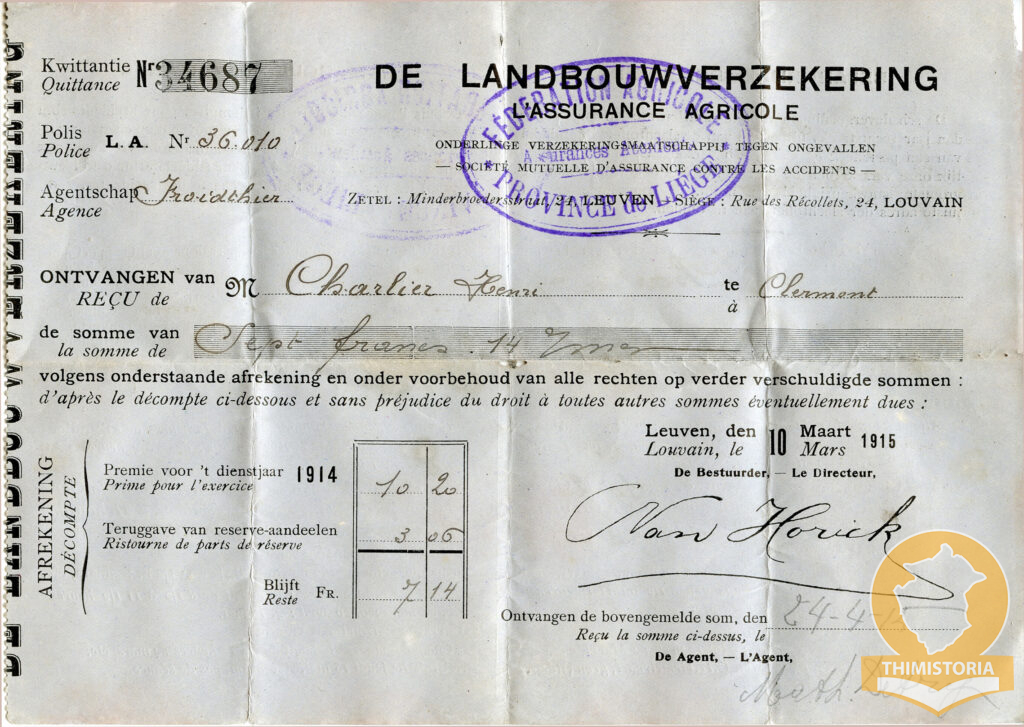 Kwittantie Nr 34687
Quittance
DE LANDBOUWVERZEKERING
L'ASSURANCE AGRICOLE
Polis L. A. Nr. 36.010
Police
ONDERLINGE VERZEKERINGSMAATSCHAPPIJ TEGEN ONGEVALLEN
— SOCIÉTÉ MUTUELLE D'ASSURANCE CONTRE LES ACCIDENTS —
FÉDÉRATION AGRICOLE
Assurances Accidents
* PROVINCE de LIÉGE *
Agentschap Froidthier
Agence
ZETEL : Minderbroedersstraat, 24, LEUVEN SIÈGE : Rue des Récollets, 24, LOUVAIN
ONTVANGEN van M Charlier Henri te Clermont
REÇU de à
de somme van Sept francs 14
la somme de
volgens onderstaande afrekening en onder voorbehoud van alle rechten op verder verschuldigde sommen :
d'après le décompte ci-dessous et sans préjudice du droit à toutes autres sommes éventuellement dues :
Leuven, den 10 Maart 1915
Louvain, le Mars
De Bestuurder, — Le Directeur,
AFREKENING
DÉCOMPTE
Premie voor 't dienstjaar 1914 10 20
Prime pour l'exercice
Teruggave van reserve-aandeelen 3 06
Ristourne de parts de réserve
Blijft FR. 7 14
Reste
Van Horick
Ontvangen de bovengemelde som, den 24-4-
Reçu la somme ci-dessus, le
De Agent, — L'Agent,
Math.
THIMISTORIA
DE LANDBOUWVERZEKERING